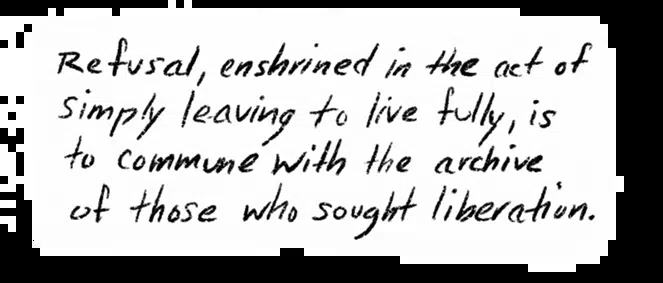 Refusal, enshrined in the act of
simply leaving to live fully, is
to commune with the archive
of those who sought liberation.